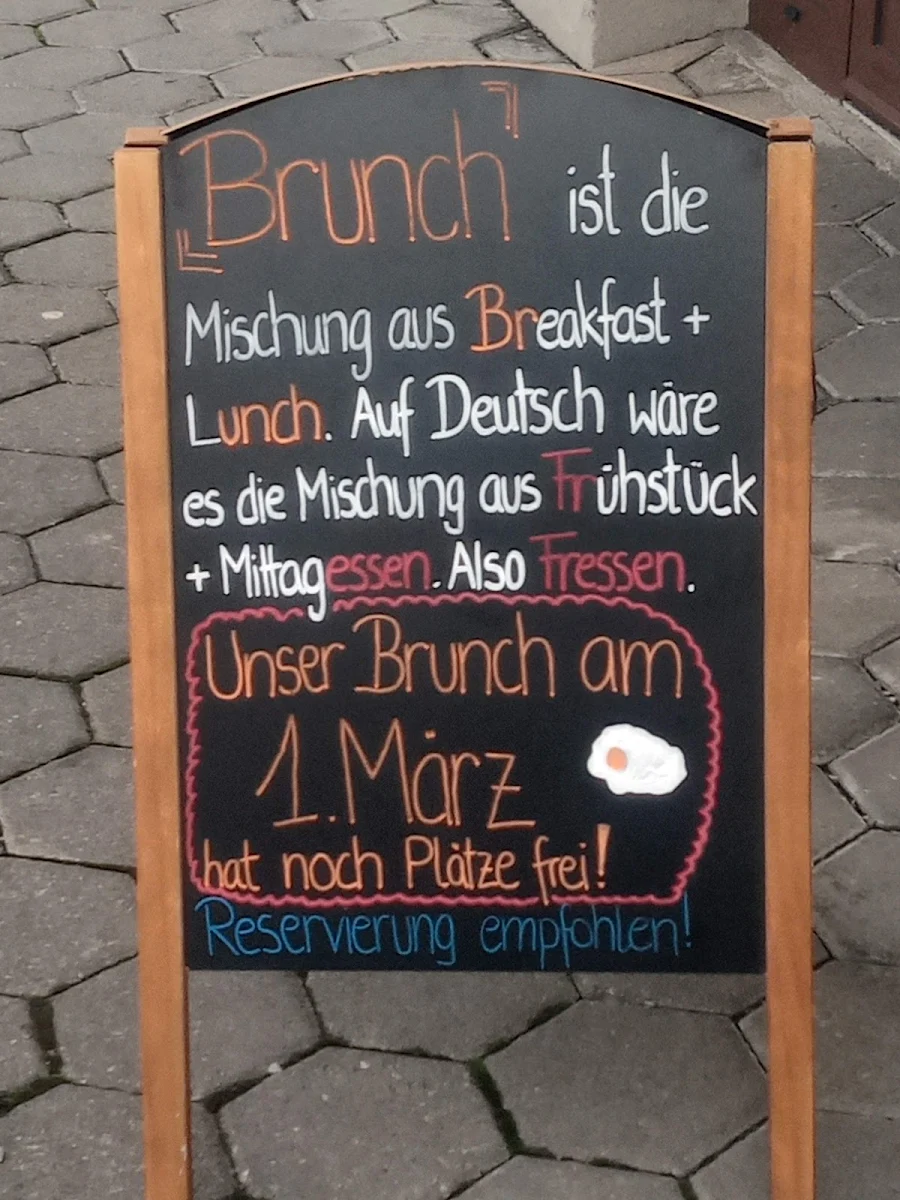 Brunch ist die
Mischung aus Breakfast +
Lunch. Auf Deutsch wäre
es die Mischung aus Frühstück
+ Mittagessen. Also Fressen.
Unser Brunch am
1. März
hat noch Plätze frei!
Reservierung empfohlen!